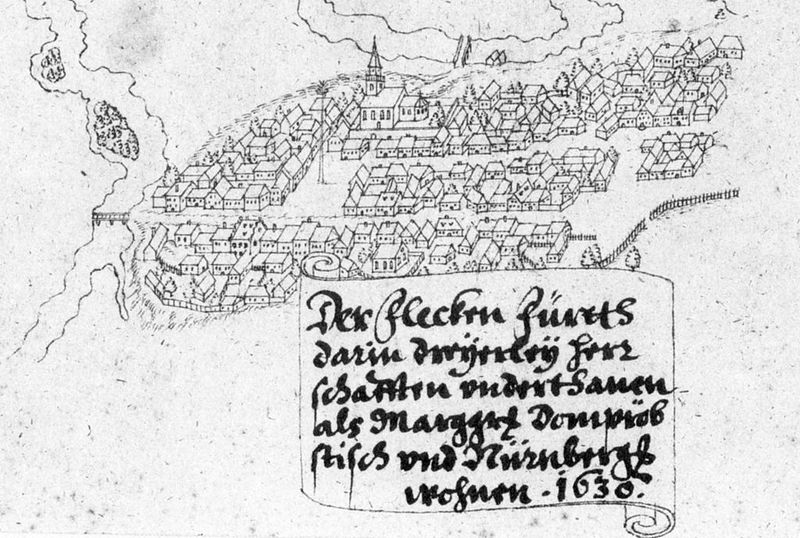 Der Flecken Fürrth
darin dreÿerleÿ herr
schafften vnderthanen
als Marggrf Dompröb
stisch vnd Nürnbergs
wohnen · 1630.